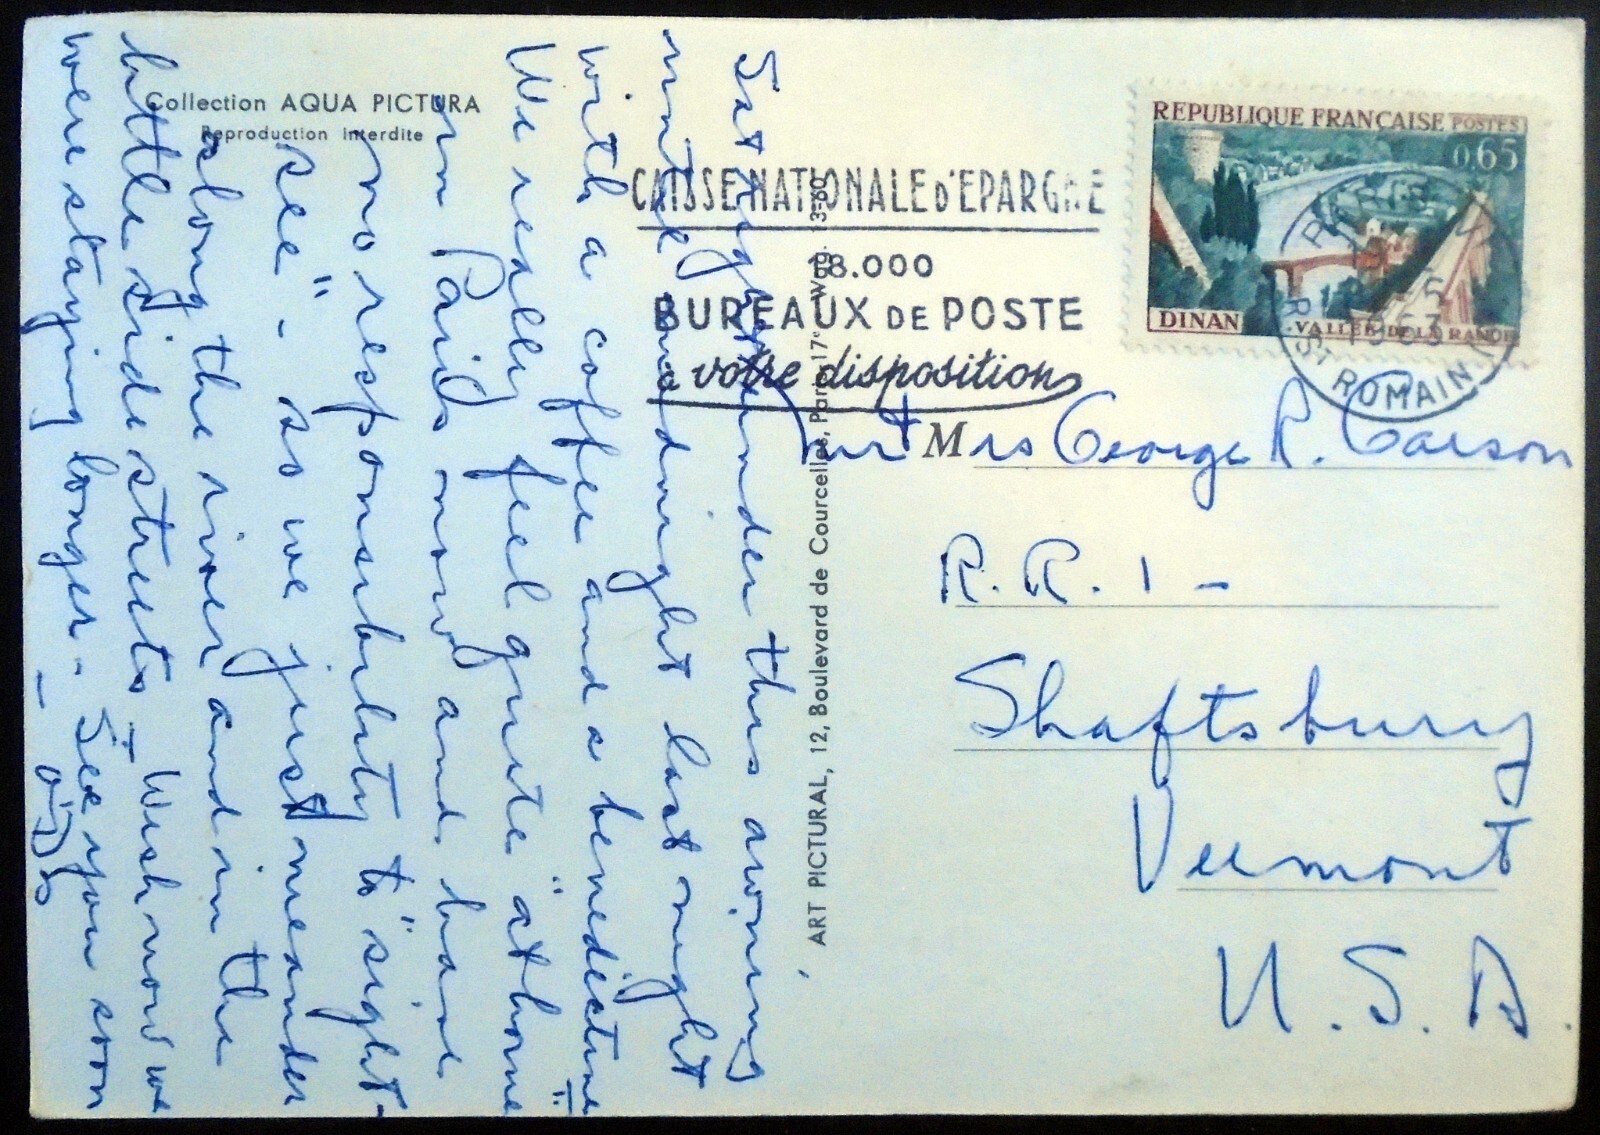 Collection AQUA PICTURA
Reproduction interdite
Sat right under this awning
until midnight last night
with a coffee and a benedictine
We really feel quite "at home"
in Paris now and have
no responsibility to "sight-
see" - so we just meander
along the river and in the
little side streets - Wish now we
were staying longer - See you soon
ART PICTURAL, 12, Boulevard de Courcelles, Paris 17e
CAISSE NATIONALE D'EPARGNE
18.000
BUREAUX DE POSTE
à votre disposition
REPUBLIQUE FRANÇAISE POSTES
0,65
DINAN VALLEE DE LA RANCE
PARIS V
1963
R. ST ROMAIN
Mrs George R. Carson
R.R. 1 -
Shaftsbury
Vermont
U.S.A.